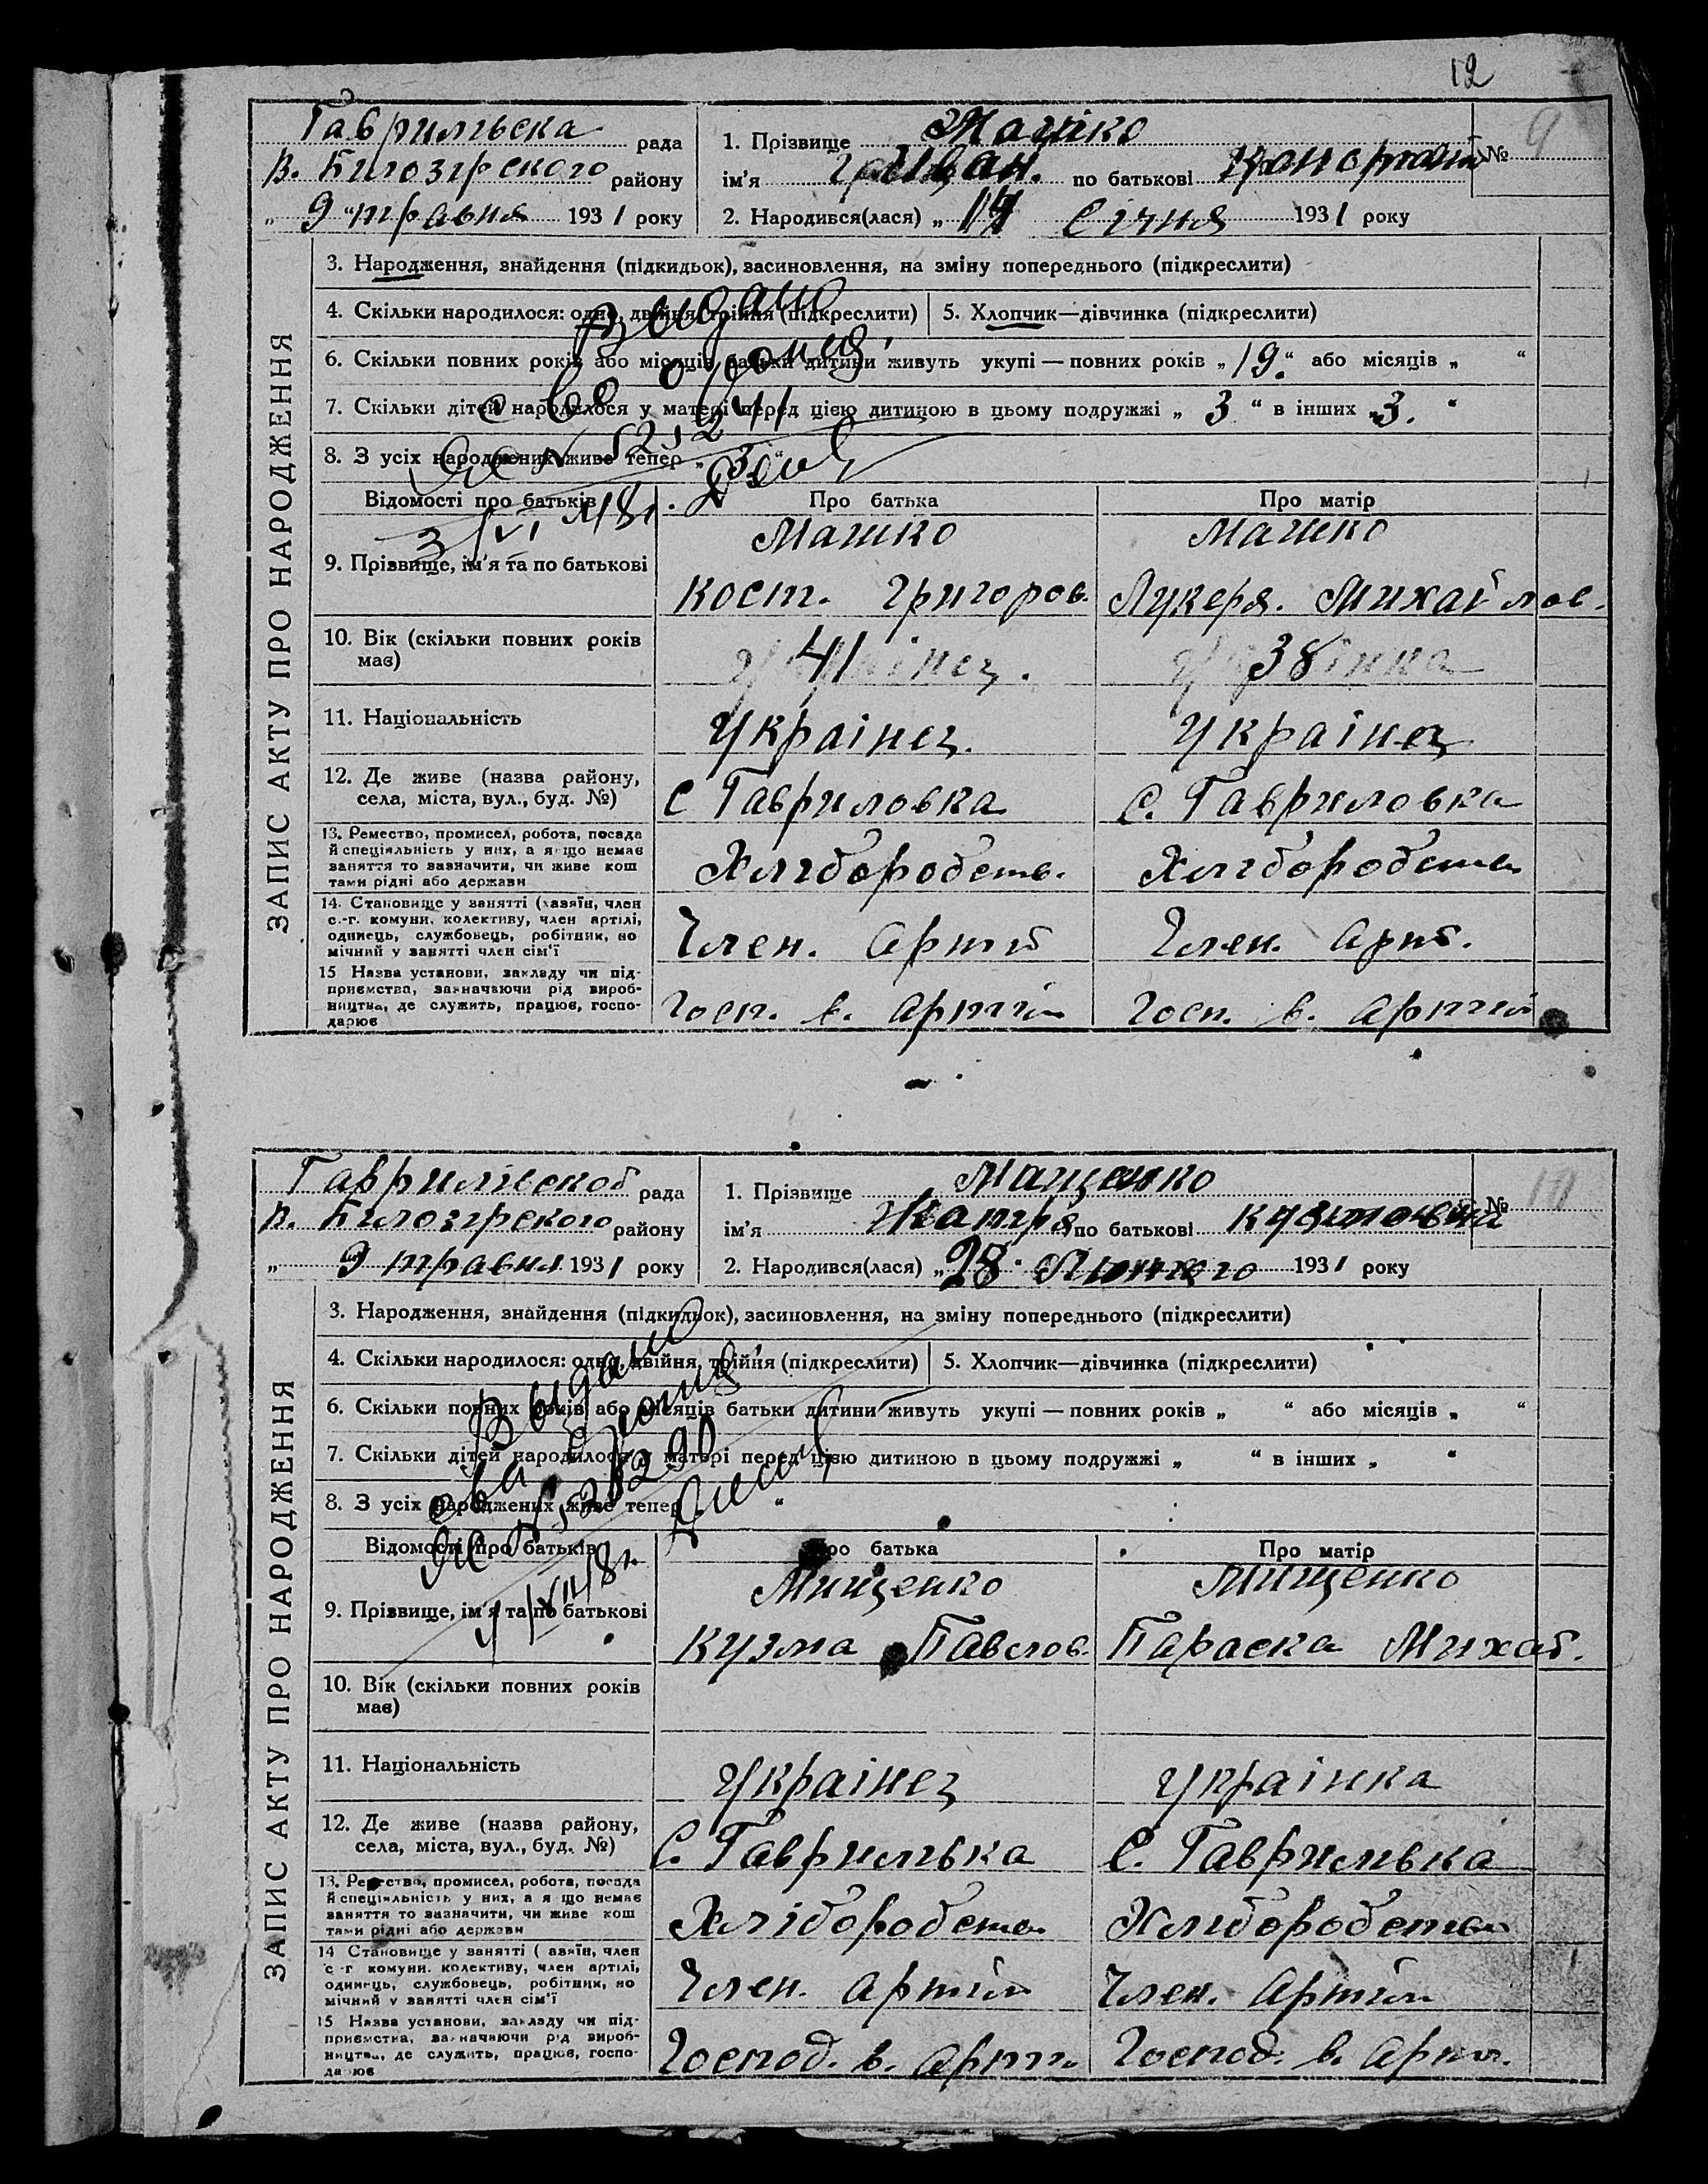 12
Гаврильска рада
В. Білозірского району
„ 9 “ травня 1931 року
1. Прізвище Машко
ім'я Іван. по батькові
№ 9
2. Народився(лася) „ 14 Січня 1931 року
ЗАПИС АКТУ ПРО НАРОДЖЕННЯ
3. Народження, знайдення (підкидьок), засиновлення, на зміну попереднього (підкреслити)
4. Скільки народилося: одно, двійня, трійня (підкреслити)
5. Хлопчик—дівчинка (підкреслити)
6. Скільки повних років або місяців батьки дитини живуть укупі — повних років „ 19 “ або місяців „ “
7. Скільки дітей народилося у матері перед цією дитиною в цьому подружжі „ 3 “ в інших „ 3. “
8. З усіх народжених живе тепер „ 3 “
Выдано
Відомості про батьків
Про батька
Про матір
9. Прізвище, ім'я та по батькові
Машко
Кост. Григоров.
Машко
Лукеря. Михайлов.
10. Вік (скільки повних років має)
41
38
11. Національність
Українец.
Українец
12. Де живе (назва району, села, міста, вул., буд. №)
С Гавриловка
С. Гавриловка
13. Ремество, промисел, робота, посада
й спеціяльність у них, а якщо немає
заняття то зазначити, чи живе кош
тами рідні або держави
Хліборобств.
Хліборобства
14. Становище у занятті (хазяїн, член
с.-г. комуни, колективу, член артілі,
одинець, службовець, робітник, по
мічний у занятті член сім'ї
Член. Артій
Член. Арт.
15 Назва установи, закладу чи під-
приємства, зазначаючи рід вироб-
ництва, де служить, працює, госпо-
дарює
Госп. в. Артіи
Госп. в. Артіи
Гаврилівской рада
В. Білозірского району
„ 9 травня 1931 року
1. Прізвище Мащенко
ім'я Катря по батькові Кузмовна
№ 10
2. Народився(лася) „ 28 “ Лютого 1931 року
ЗАПИС АКТУ ПРО НАРОДЖЕННЯ
3. Народження, знайдення (підкидьок), засиновлення, на зміну попереднього (підкреслити)
4. Скільки народилося: одно, двійня, трійня (підкреслити)
5. Хлопчик—дівчинка (підкреслити)
6. Скільки повних років або місяців батьки дитини живуть укупі — повних років „ “ або місяців „ “
7. Скільки дітей народилося у матері перед цією дитиною в цьому подружжі „ “ в інших „ “
8. З усіх народжених живе тепер „ “
Выдано
Відомості про батьків
Про батька
Про матір
9. Прізвище, ім'я та по батькові
Мищенко
Кузма Павлов.
Мищенко
Параска Михай.
10. Вік (скільки повних років має)
11. Національність
Українец
Українка
12. Де живе (назва району, села, міста, вул., буд. №)
С. Гаврилівка
С. Гаврилівка
13. Ремество, промисел, робота, посада
й спеціяльність у них, а якщо немає
заняття то зазначити, чи живе кош
тами рідні або держави
Хліборобства
Хліборобства
14 Становище у занятті (хазяїн, член
с.-г комуни. колективу, член артілі,
одинець, службовець, робітник, по
мічний у занятті член сім'ї
Член. Артіи
Член. Артіи
15 Назва установи, закладу чи під-
приємства, зазначаючи рід вироб-
ництва, де служить, працює, госпо-
дарює
Господ. в. Арти.
Господ. в. Арти.